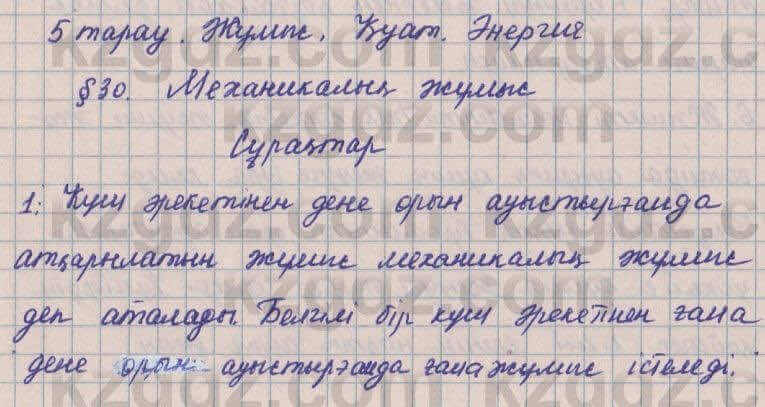 5 тарау. Жұмыс. Қуат. Энергия
§30. Механикалық жұмыс
Сұрақтар
1. Күш әрекетінен дене орын ауыстырғанда
атқарылатын жұмыс механикалық жұмыс
деп аталады. Белгілі бір күш әрекетінен ғана
дене орын ауыстырғанда ғана жұмыс істеледі.
kzgdz.com